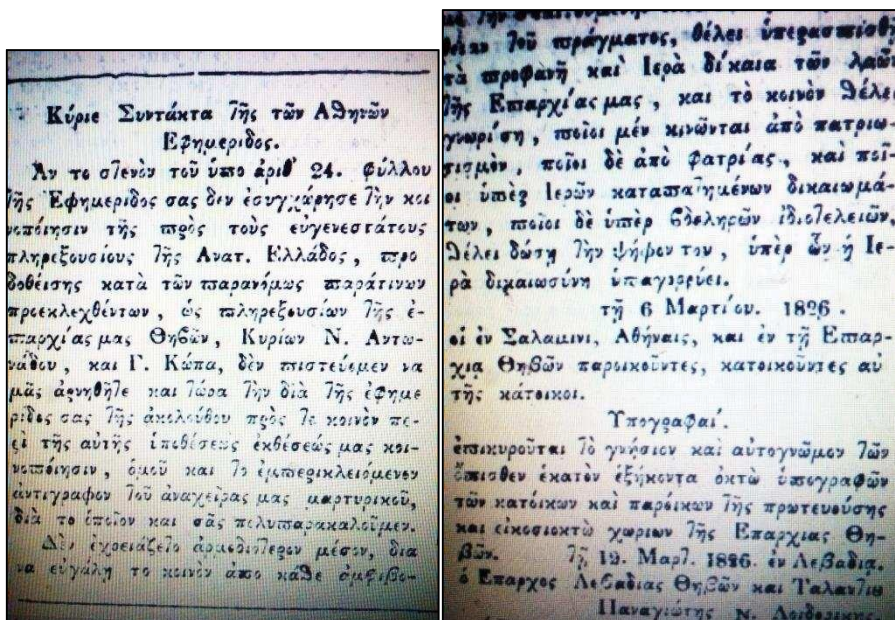 Κύριε Συντάκτα τῆς τῶν Αθηνῶν
Εφημερίδος.
Αν το στενὸν τοῦ ὑπο ἀριθ' 24. φύλλου
τῆς Εφημερίδος σας δεν ἐσυγχώρησε τὴν κοι
νοποίησιν τῆς πρὸς τοὺς εὐγενεστάτους
πληρεξουσίους τῆς Ανατ. Ελλάδος, προ
δοθείσης κατὰ τῶν παρανόμως παράτινων
προεκλεχθέντων, ὡς πληρεξουσίων τῆς ἐ-
παρχίας μας Θηβῶν, Κυρίων Ν. Αντω-
νάδου, και Γ. Κώπα, δὲν πιστεύομεν να
μᾶς ἀρνηθῆτε και τώρα τὴν διὰ τῆς ἐφημε
ρίδος σας τῆς ἀκολούθου πρὸς το κοινὸν πε-
ρὶ τῆς αὐτῆς ὑποθέσεώς ἐκθέσεώς μας κοι-
νοποίησιν, ὁμοῦ και το ἐμπερικλειόμενον
ἀντίγραφον τοῦ ἀναχεῖρας μας μαρτυρικοῦ,
διὰ το ὁποῖον και σᾶς πολυπαρακαλοῦμεν.
Δὲν ἐχρειάζετο ἁρμοδιότερον μέσον, δια
να εὐγάλῃ το κοινὸν ἀπο κάθε ἀμφιβο-
τοῦ πράγματος, θέλει ὑπερασπισθῆ
τὰ προφανῆ καὶ Ιερὰ δίκαια τῶν λαῶν
τῆς Επαρχίας μας, και τὸ κοινὸν θέλει
γνωρίσῃ, ποῖοι μέν κινῶνται ἀπὸ πατριω-
τισμὸν, ποῖοι δὲ ἀπὸ φατρίας, καὶ ποῖ-
οι ὑπὲρ Ιερῶν καταπατημένων δικαιωμά-
των, ποῖοι δὲ ὑπὲρ βδελυρῶν ἰδιοτελειῶν,
θέλει δώσῃ τὴν ψήφον του, ὑπὲρ ὧν ἡ Ιε-
ρὰ δικαιωσύνη ὑπαγορεύει.
τῇ 6 Μαρτίου. 1826.
οἱ ἐν Σαλαμινι, Αθήναις, και ἐν τῇ Επαρ-
χία Θηβῶν παροικοῦντες, κατοικοῦντες αὐ
τῆς κάτοικοι.
Υπογραφαί.
ἐπικυροῦται το γνήσιον και αὐτογνώμον τῶν
ὄπισθεν ἑκατὸν ἑξήκοντα ὀκτὼ ὑπογραφῶν
τῶν κατοίκων καὶ παροίκων τῆς πρωτευούσης
και εἰκοσιοκτὼ χωρίων τῆς Επαρχιας Θη-
βῶν. τῇ 12. Μαρτ. 1826. ἐν Λεβαδιᾳ.
ὁ Επαρχος Λεβαδιας Θηβῶν και Ταλαντίου
Παναγιώτης Ν. Λοιδορίκης.